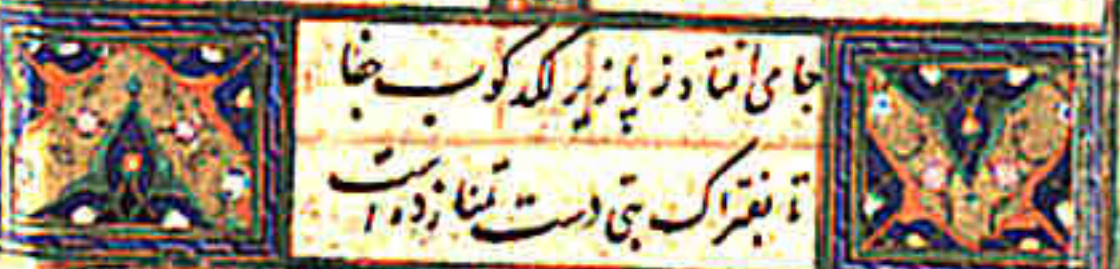 جامی افتاد ز پا زیر لگدکوب جفا
تا بفتراک بتی دست تمنا زده است